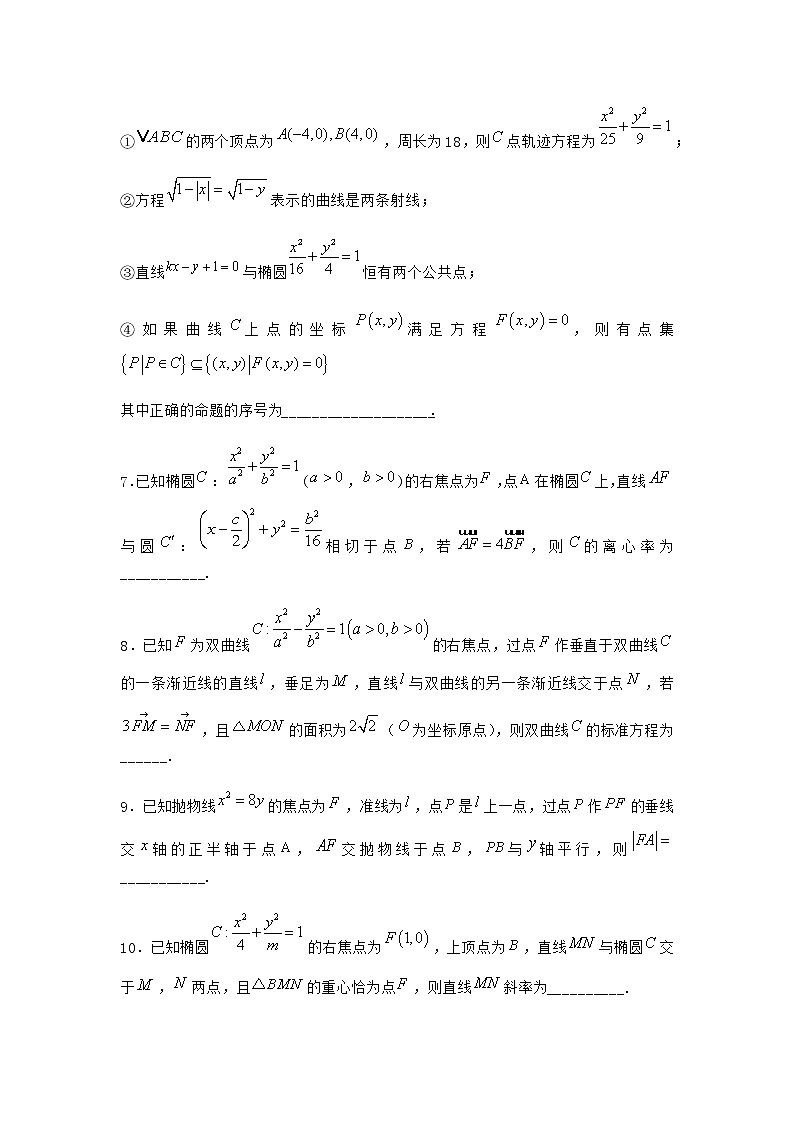 ①VABC的两个顶点为A(−4,0),B(4,0),周长为18,则C点轨迹方程为x²/25+y²/9=1;
②方程√(1−|x|)=√(1−y)表示的曲线是两条射线;
③直线kx−y+1=0与椭圆x²/16+y²/4=1恒有两个公共点;
④如果曲线C上点的坐标P(x,y)满足方程F(x,y)=0,则有点集
{P|P∈C}⊆{(x,y)|F(x,y)=0}
其中正确的命题的序号为____________________.
7.已知椭圆C:x²/a²+y²/b²=1(a>0,b>0)的右焦点为F,点A在椭圆C上,直线AF
与圆C′:(x−c/2)²+y²=b²/16相切于点B,若AF=4BF,则C的离心率为
___________.
8.已知F为双曲线C:x²/a²−y²/b²=1(a>0,b>0)的右焦点,过点F作垂直于双曲线C
的一条渐近线的直线l,垂足为M,直线l与双曲线的另一条渐近线交于点N,若
3FM→=NF→,且△MON的面积为2√2(O为坐标原点),则双曲线C的标准方程为
______.
9.已知抛物线x²=8y的焦点为F,准线为l,点P是l上一点,过点P作PF的垂线
交x轴的正半轴于点A,AF交抛物线于点B,PB与y轴平行,则|FA|=
___________.
10.已知椭圆C:x²/4+y²/m=1的右焦点为F(1,0),上顶点为B,直线MN与椭圆C交
于M,N两点,且△BMN的重心恰为点F,则直线MN斜率为__________.